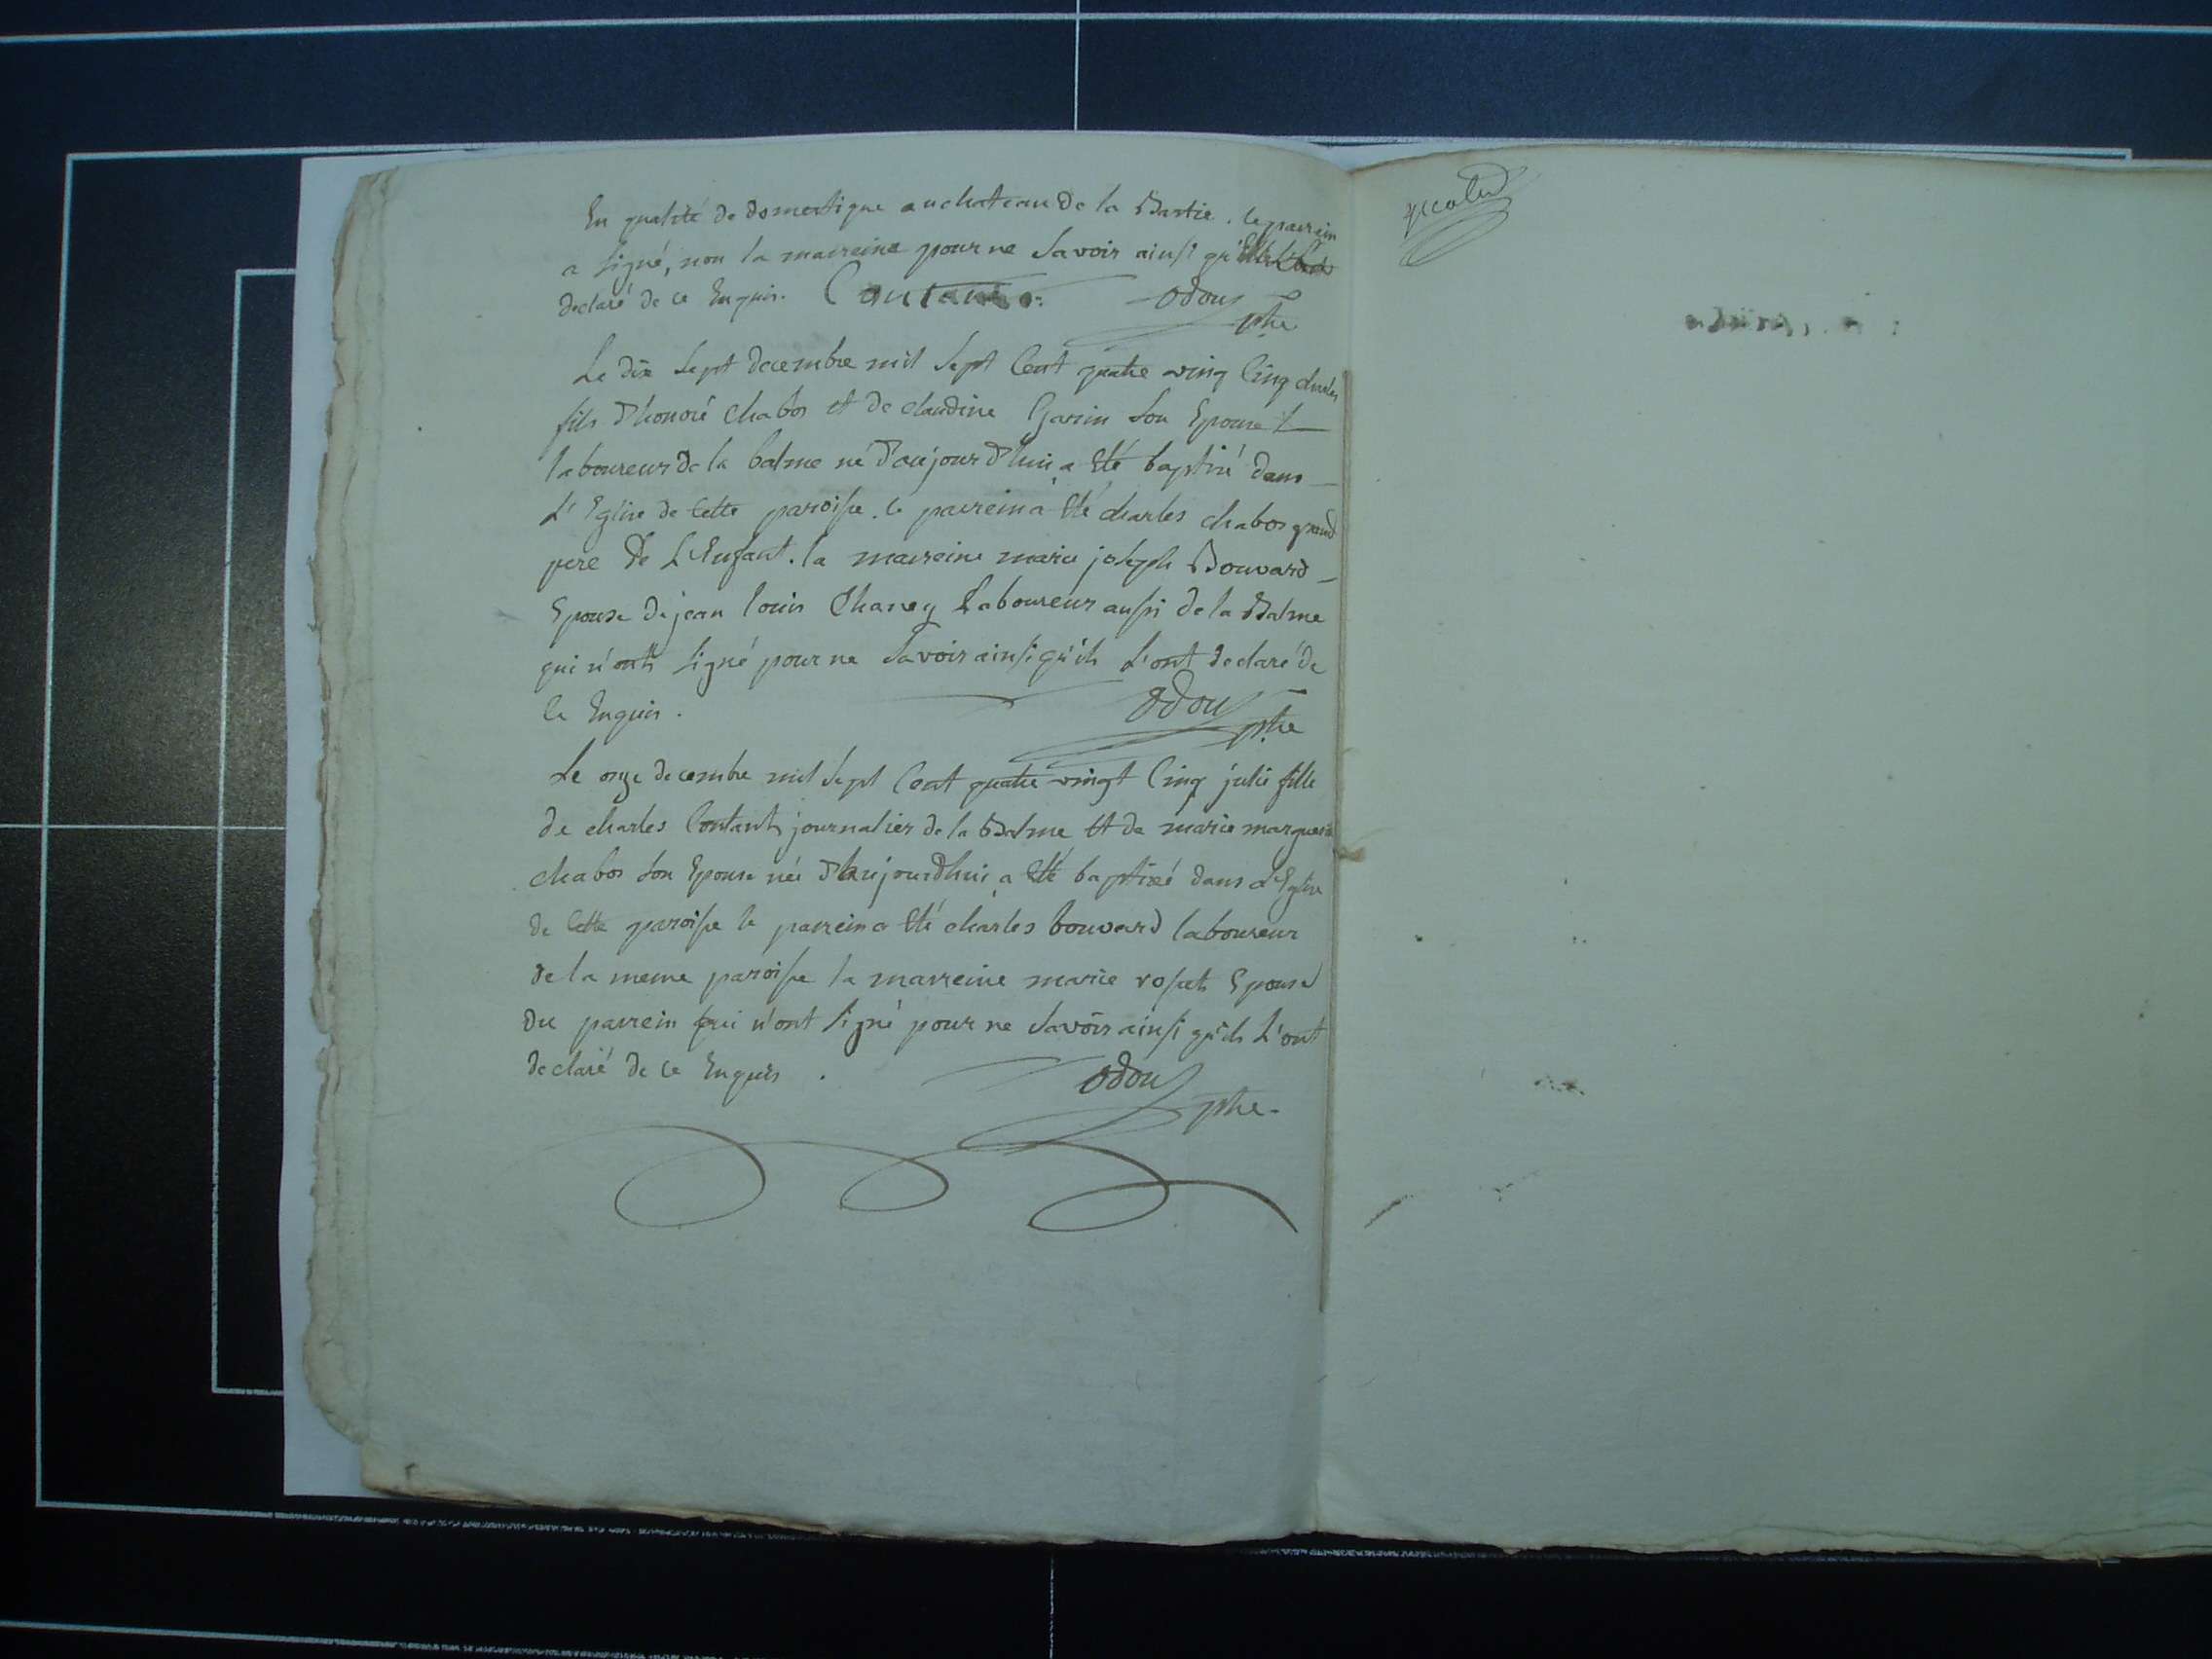 En qualité de domestique au chateau de la Bastie. le parrein
a signé, non la marreine pour ne savoir ainsi qu'Elle l'a
declaré de ce Enquis. odou
ptre
Le dix sept decembre mil sept Cent quatre ving Cinq charles
fils d'honoré chabos et de claudine Garin son Epouse
laboureur de la balme né d'aujourd'hui a Eté baptisé dans
L'Eglise de Cette paroisse. le parrein a Eté charles chabos grand
pere de L'Enfant. la marreine marie joseph Bouvard
Epouse de jean louis Chaney Laboureur aussi de la Balme
qui n'ont signé pour ne savoir ainsi qu'ils L'ont declaré de
Ce Enquis. odou
ptre
Le onze decembre mil sept Cent quatre vingt Cinq julie fille
de charles Contant journalier de la Balme Et de marie marguerite
chabos son Epouse née d'aujourdhui a Eté baptisé dans L'Eglise
de Cette paroisse le parrein a Eté charles bouvard laboureur
de la meme paroisse la marreine marie rosset Epouse
du parrein qui n'ont signé pour ne savoir ainsi qu'ils L'ont
declaré de ce Enquis. odou
ptre.